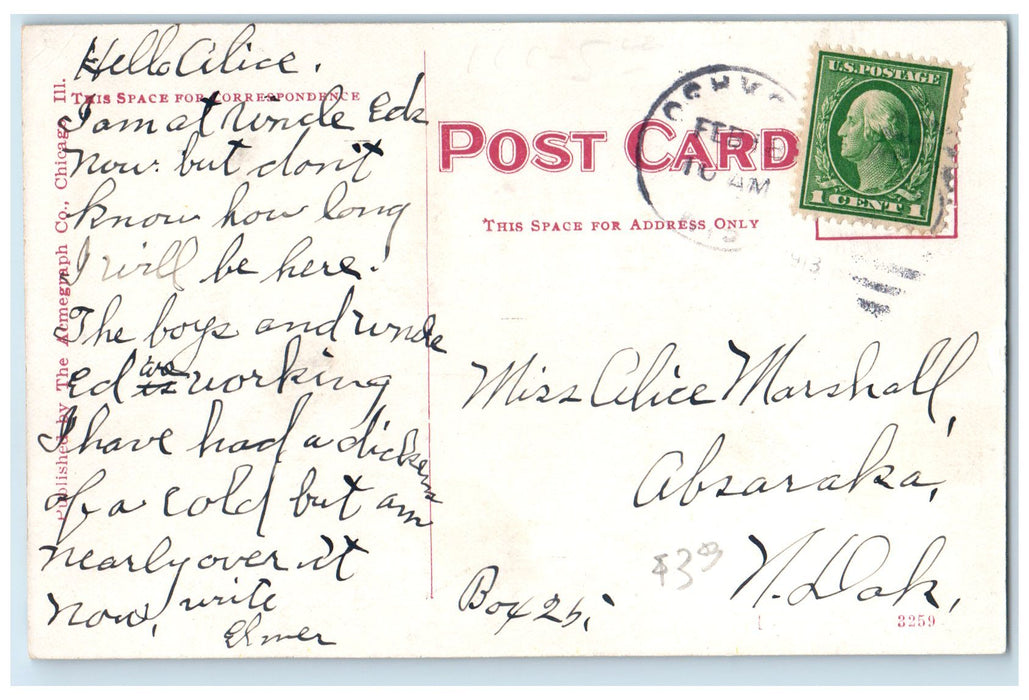 Hello Alice.
THIS SPACE FOR CORRESPONDENCE
I am at Uncle Eds
now. but don't
know how long
I will be here.
The boys and Uncle
Ed are working
I have had a dickens
of a cold but am
nearly over it
now, write
Elmer
Published by The Acmegraph Co., Chicago, Ill.
POST CARD
THIS SPACE FOR ADDRESS ONLY
FEB
10 AM
U.S. POSTAGE
1 CENT 1
Miss Alice Marshall,
Absaraka,
N. Dak,
Box 25,
$3.00
3259